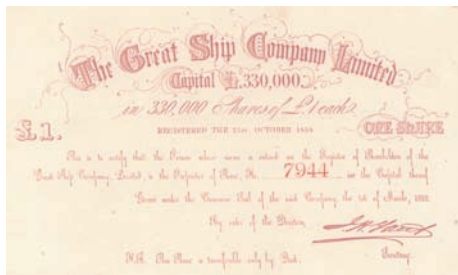 The Great Ship Company Limited
Capital £.330,000.
in 330,000 Shares of £1 each.
£1.
REGISTERED THE 21st. OCTOBER 1858
ONE SHARE
This is to certify that the Person whose name is entered on the Register of Shareholders of the
Great Ship Company, Limited, is the Proprietor of Share, No. 7944 in the Capital thereof
Given under the Common Seal of the said Company the 1st of March,
By order of the Directors,
Secretary.
N.B. This Share is transferable only by Deed.